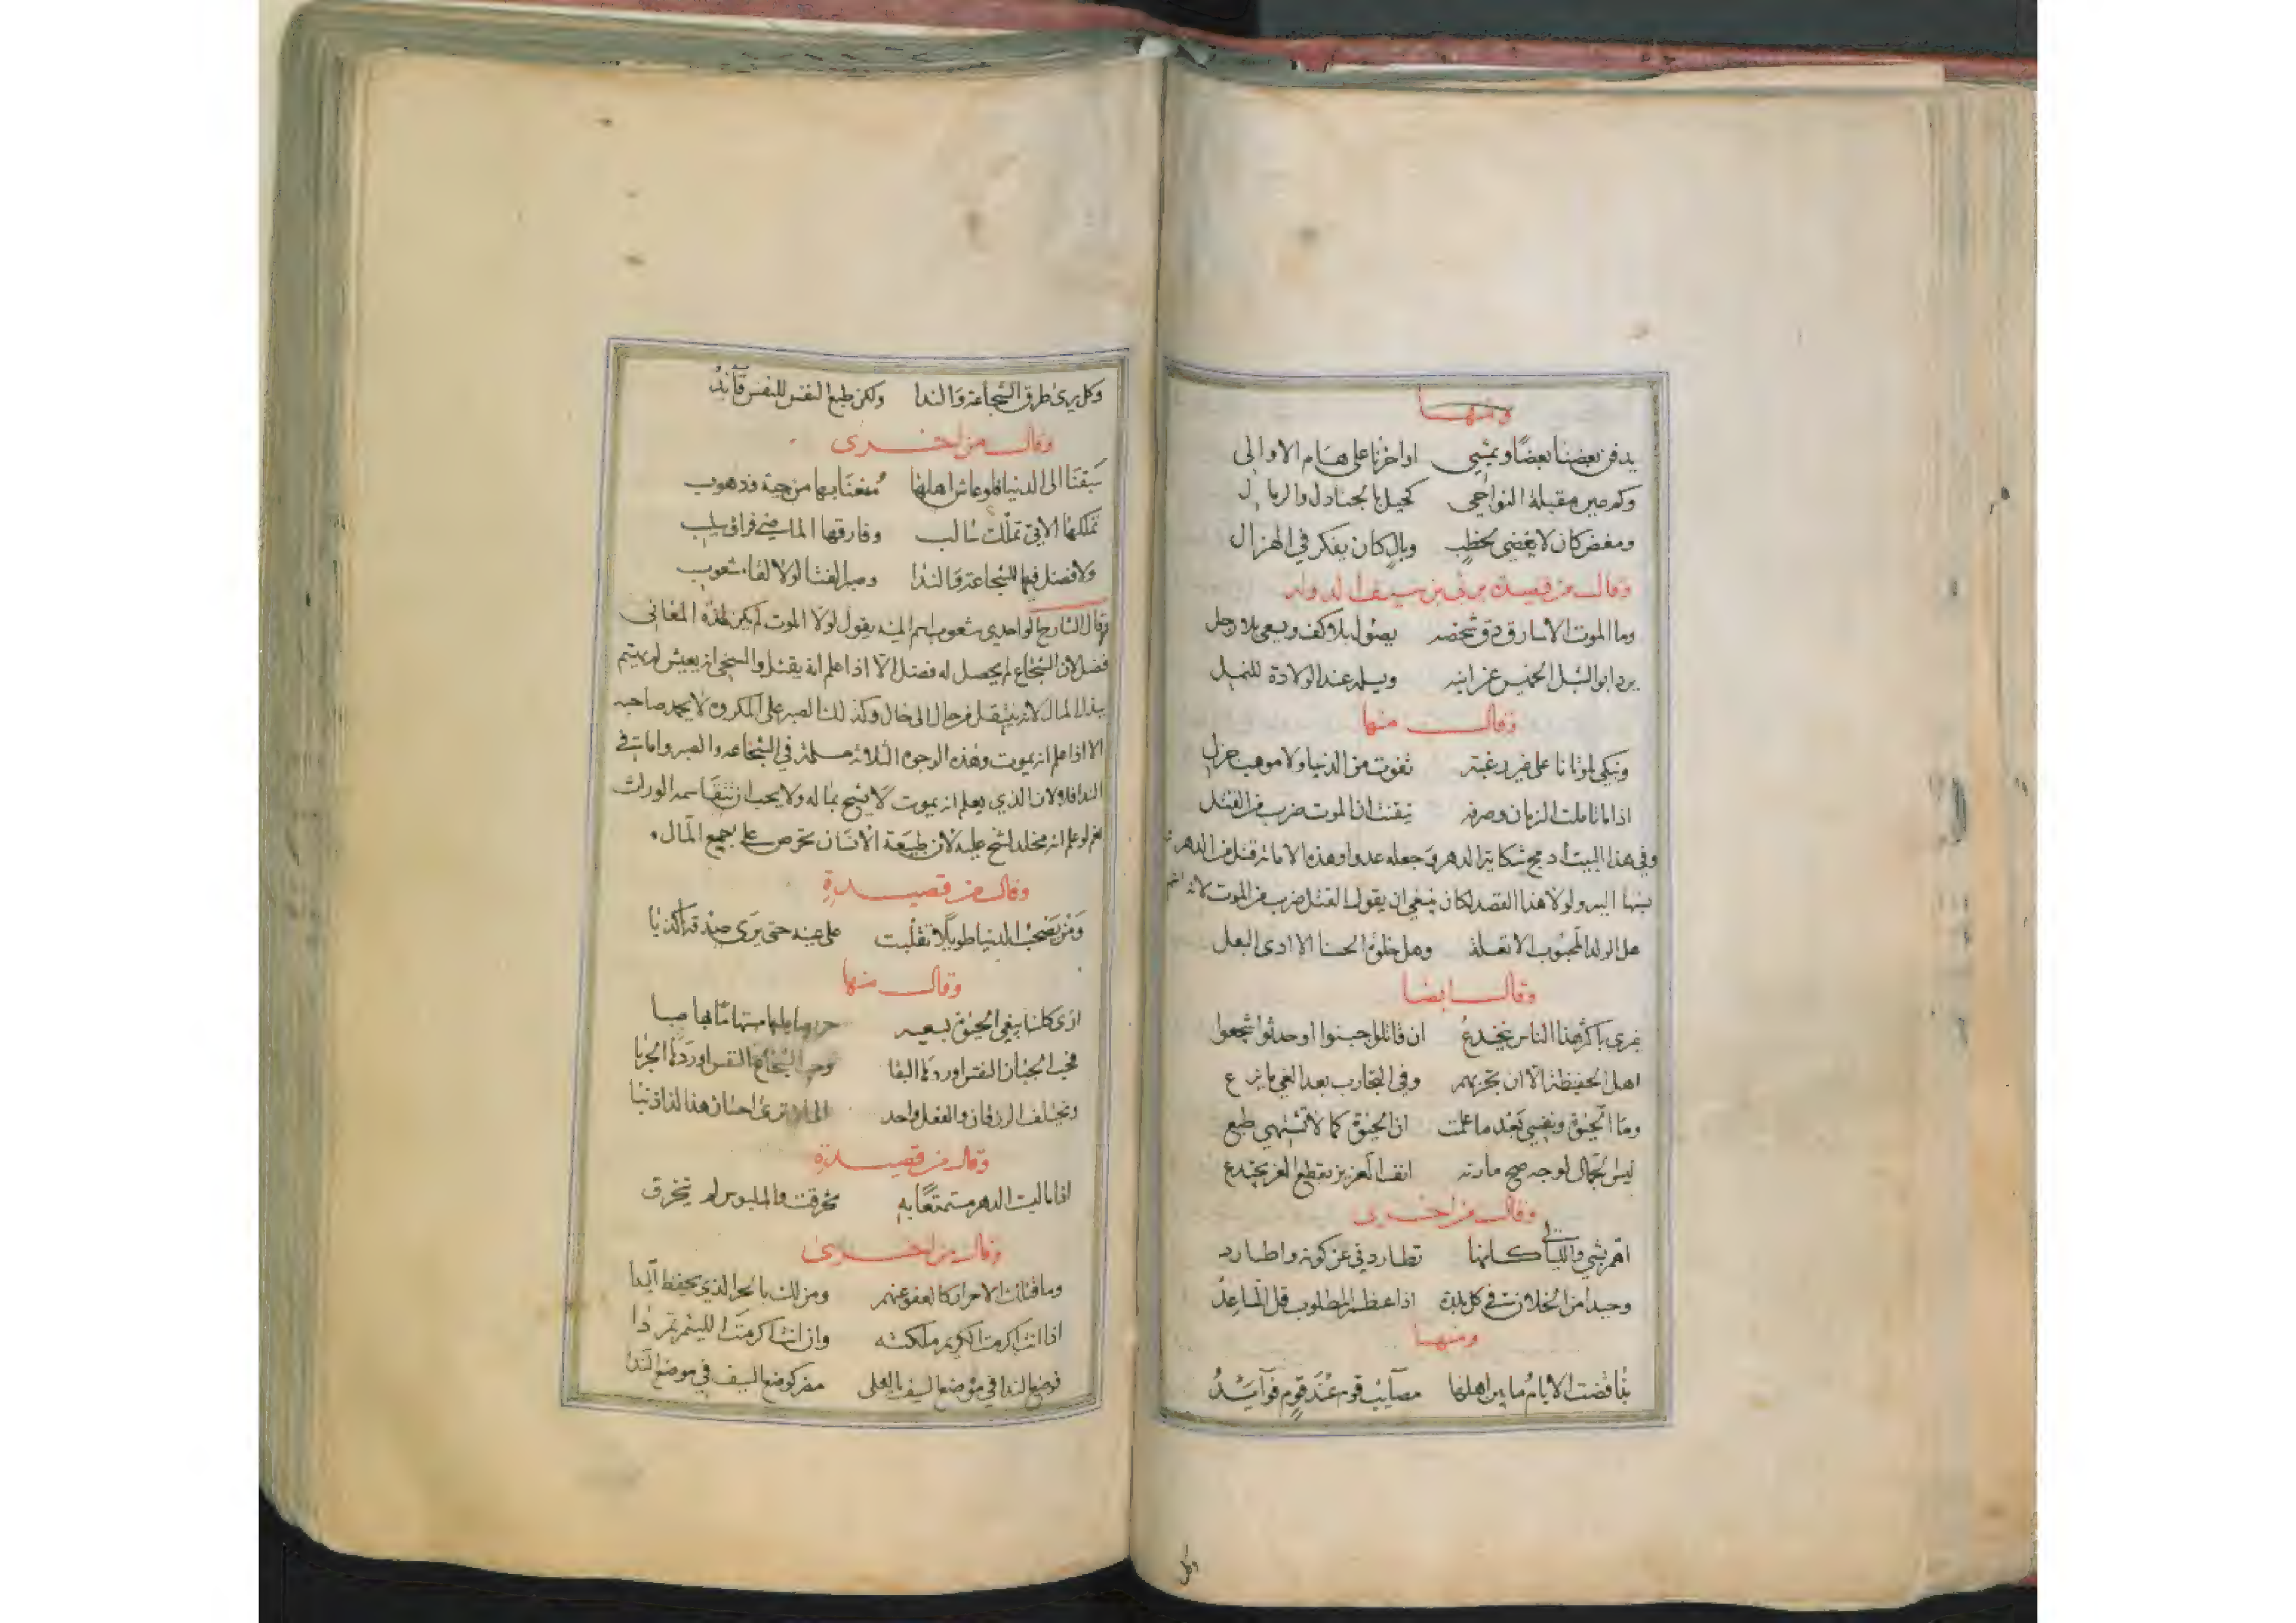 ومنها
يدفن بعضنا بعضا ويمشي اواخرنا على هام الاوالى
وكم عين مقبلة النواحي كحيل بالجنادل والرمال
ومغض كان لا يغضى لخطب وبال كان يفكر في الهزال
وقال من قصيدة يرثي بن سيف الدوله
وما الموت الا سارق دق شخصه يصول بلا كف ويسعى بلا رجل
يرد ابو الشبل الخميس عن ابنه ويسلمه عند الولادة للنمل
وقال منها
ونبكي لموتانا على غير رغبة تفوت من الدنيا ولا موهب جزل
اذا ما تاملت الزمان وصرفه تيقنت ان الموت ضرب من القتل
وفي هذا البيت ادمج شكاية الدهر وجعله عدوا وهذه الاماتة قتل من الدهر
ولولا هذا القصد لكان ينبغي ان يقول القتل ضرب من الموت لانه
هل الولد المحبوب الا تعلة وهل خلوة الحسنا الا اذى البعل
وقال ايضا
غيري باكثر هذا الناس ينخدع ان قاتلوا جبنوا او حدثوا شجعوا
اهل الحفيظة الا ان تجربهم وفي التجارب بعد الغي ما يزع
وما الحيوة ونفسي بعد ما علمت ان الحيوة كما لا تشتهي طبع
ليس الجمال لوجه صح مارنه انف العزيز بقطع العز يجتدع
وقال من اخرى
اهم بشي والليالي كانها تطاردني عن كونه واطارد
وحيدا من الخلان في كل بلدة اذا عظم المطلوب قل المساعد
ومنها
بذا قضت الايام ما بين اهلها مصآئب قوم عند قوم فوآئد
وكل
وكل يرى طرق الشجاعة والندا ولكن طبع النفس للنفس قآئد
وقال من اخرى
سبقنا الى الدنيا فلو عاش اهلها منعنا بها من جية وذهوب
تملكها الاتي تملك سالب وفارقها الماضي فراق سليب
ولا فضل فيها للشجاعة والندا وصبر الفتا لولا لقاء شعوب
وقال الشارح الواحدي شعوب اسم المنيه يقول لولا الموت لم يكن لهذه المعاني
فضل لان الشجاع لم يحصل له فضل الا اذا علم انه يقتل والسخي
بذل المال لانه ينتقل من حال الى حال وكذلك الصبر على المكروه لا يحمد صاحبه
الا اذا علم انه يموت وهذه الوجوه الثلاثة مسلمة في الشجاعه والصبر واما في
الندا فلا لان الذي يعلم انه يموت لا يشح بماله ولا يحب ان تتقاسمه الوراث
نعم لو علم انه مخلد لشح عليه لان طبيعة الانسان تحرص على جميع المال
وقال من قصيدة
ومن يصحب الدنيا طويلا تقلبت على عينه حتى يرى صدقها كذبا
وقال منها
ارى كلنا يبغي الحيوة بسعيه حريصا عليها مستهاما بها صبا
فحب الجبان النفس اورده البقا وحب الشجاع النفس اورده الحربا
ويختلف الرزقان والفعل واحد الى ان ترى احسان هذا لذا ذنبا
وقال من قصيدة
اذا ما لبست الدهر مستمتعا به تخرقت والملبوس لم يتخرق
وقال من اخرى
وما قتل الاحرار كالعفو عنهم ومن لك بالحر الذي يحفظ اليدا
اذا انت اكرمت الكريم ملكته وان انت اكرمت اللئيم تمردا
فوضع الندا في موضع السيف بالعلى مضر كوضع السيف في موضع الندا